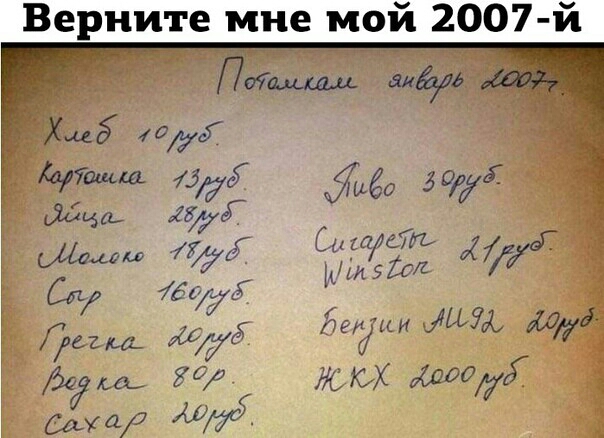 Верните мне мой 2007-й
Потомкам январь 2007г.
Хлеб 10 руб.
Картошка 13руб.
Яйца 28руб.
Молоко 18руб.
Сыр 160руб.
Гречка 20руб.
Водка 80р.
Сахар 20руб.
Пиво 30руб.
Сигареты
Winston 21руб.
Бензин АИ92 20руб.
ЖКХ 2000руб.